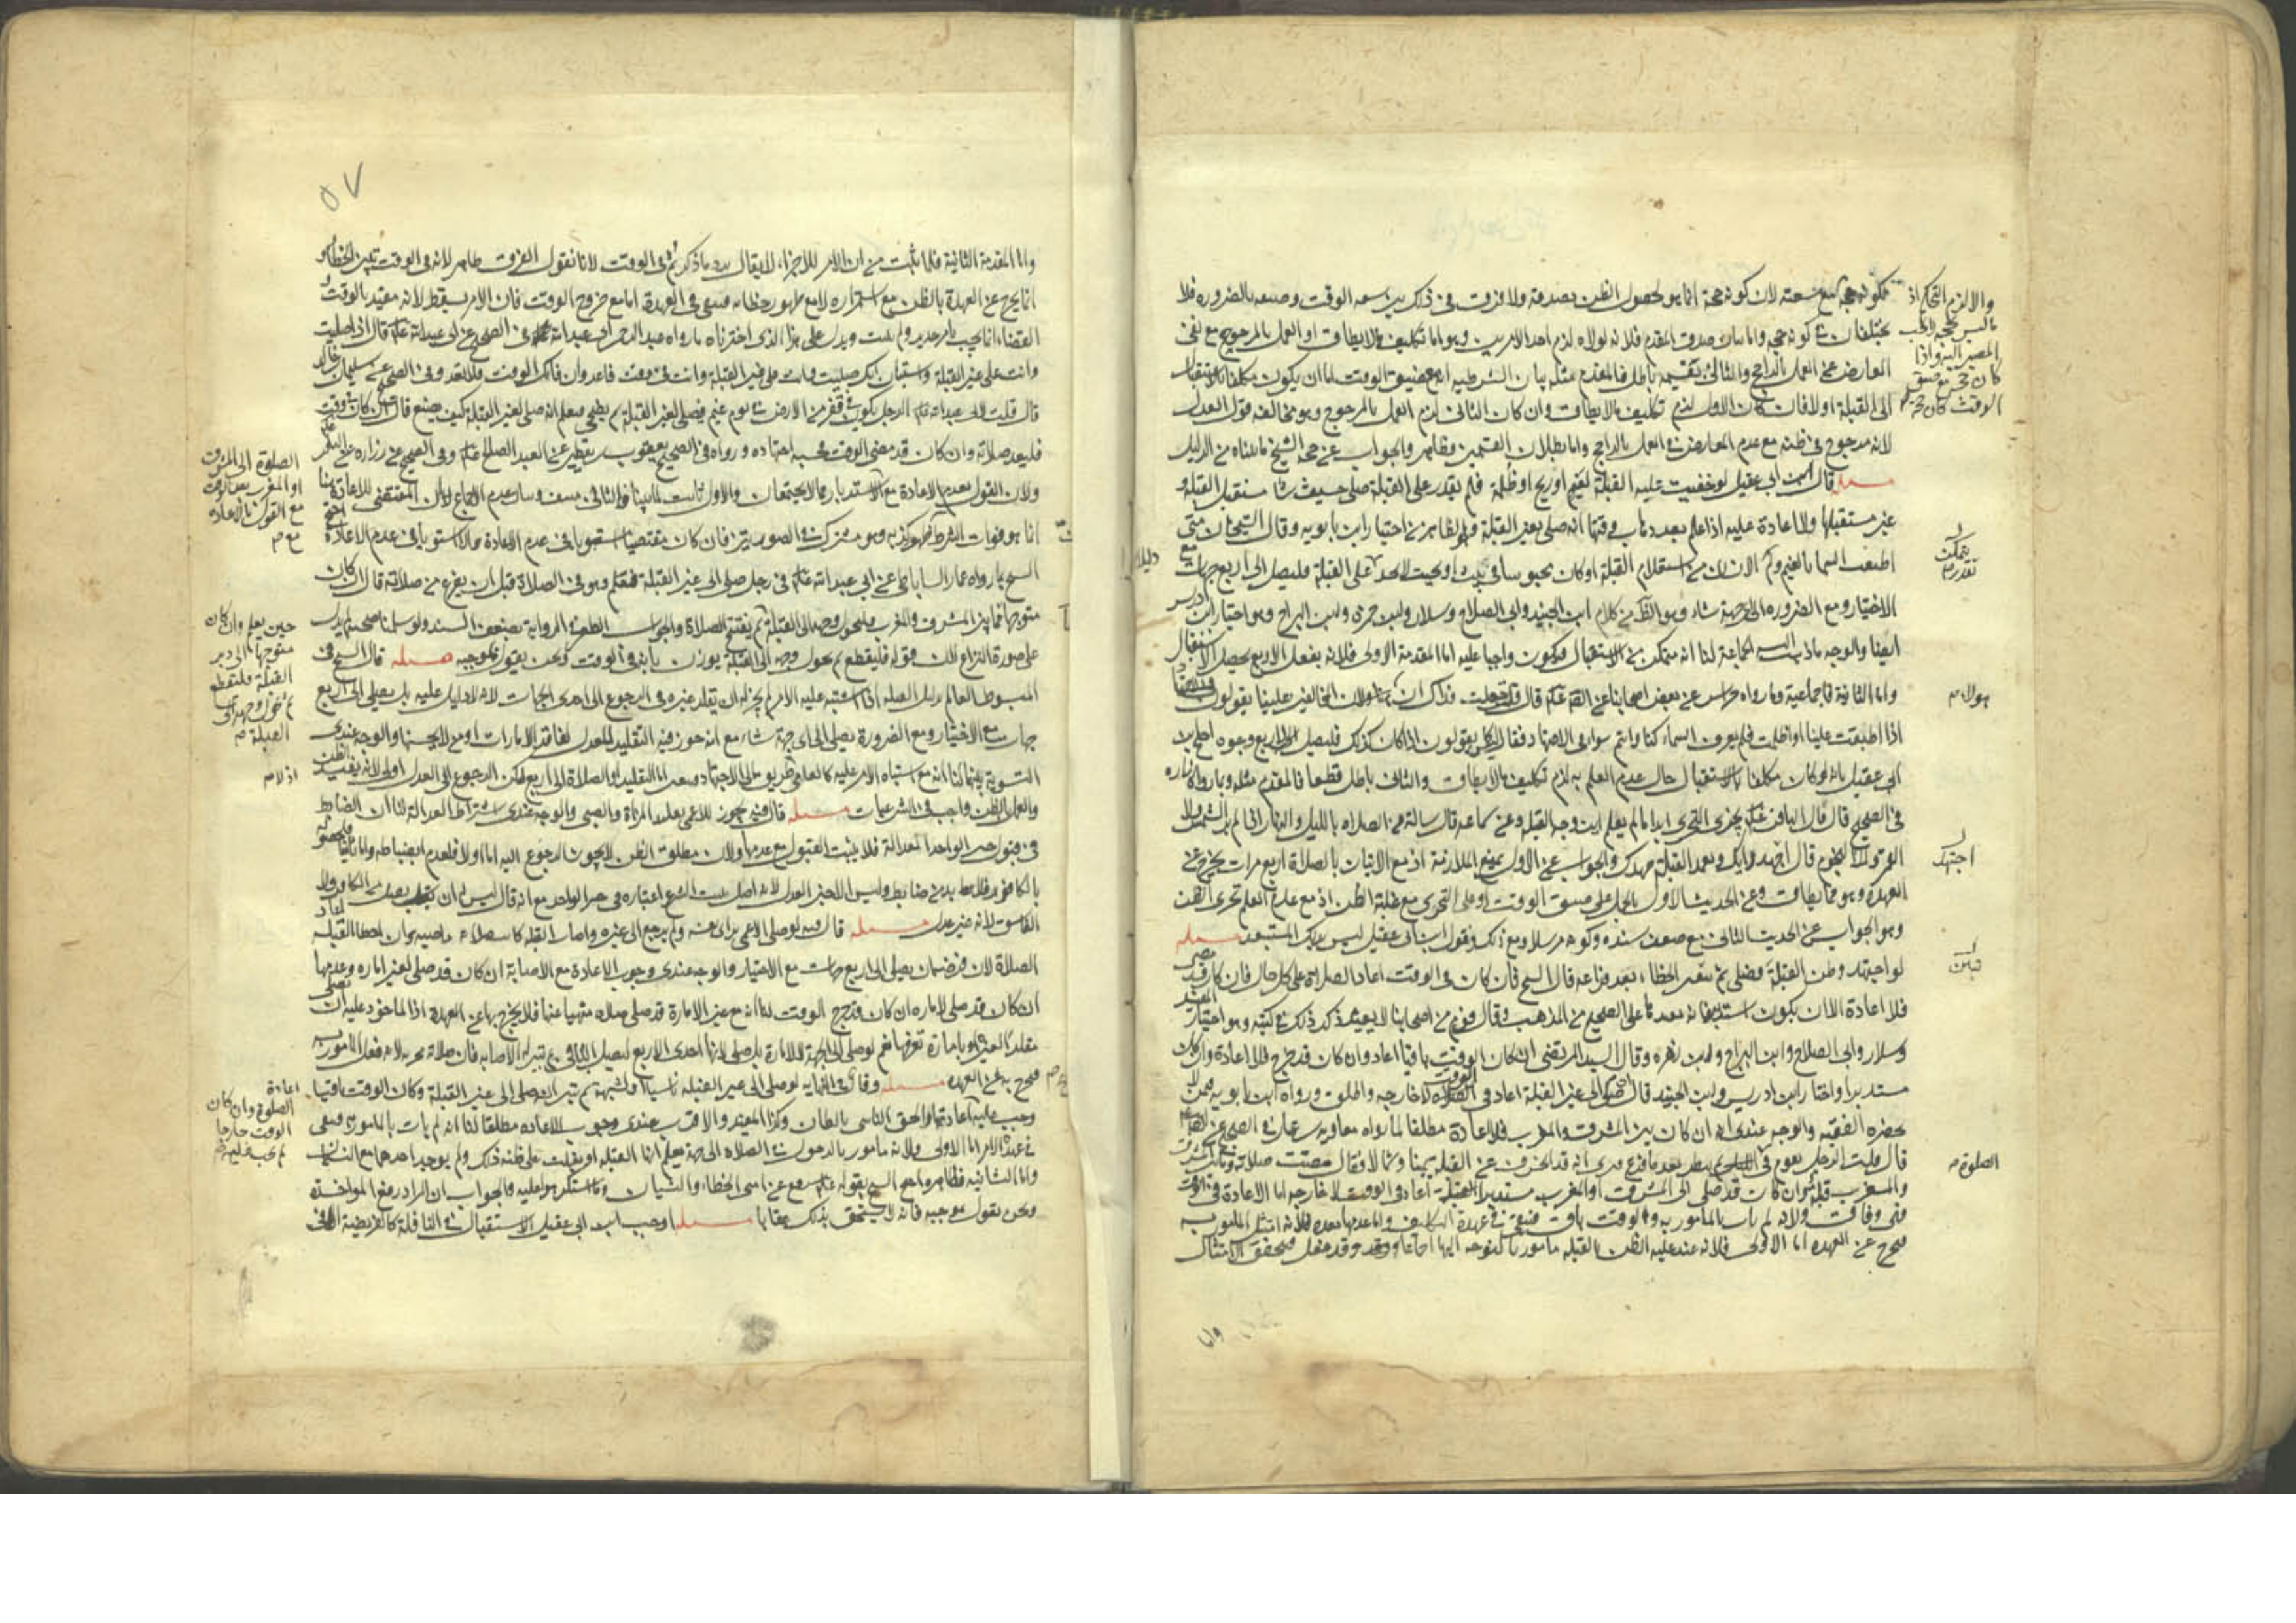 يكون حجة مع سعته لان كونه حجة انما هو لحصول الظن بصدقه ولا فرق في ذلك بين سعه الوقت وضيقه بالضروره فلا
يختلفان في كونه حجه واما بيان صدق المقدم فلانه لولاه لزم احد الامرين وهو اما تكليف ما لا يطاق او العمل بالمرجوح مع نفي
العارض عن العمل بالراجح والتالي بقسميه باطل فالمقدم مثله بيان الشرطيه انه مع ضيق الوقت اما ان يكون مكلفا بالاستقبال
الى القبلة اولا فان كان الاول لزم تكليف ما لا يطاق وان كان الثاني لزم العمل بالمرجوح وهو مخالفه قول العدل
لانه مرجوح في ظنه مع عدم المعارض في العمل بالراجح واما بطلان القسمين فظاهر والجواب عن حجة الشيخ ما بيناه من الدليل
مسله قال ابن ابي عقيل لو خفيت عليه القبلة لغيم او ريح او ظلمة فلم يقدر على القبلة صلى حيث شا مستقبل القبلة و
غير مستقبلها ولا اعادة عليه اذا علم بعد ذهاب وقتها انه صلى لغير القبلة وهو الظاهر من اختيار ابن بابويه وقال الشيخان متى
اطبقت السما بالغيم ولم الانسان من استعلام القبلة او كان محبوسا في بيت او بحيث لا يجد على القبلة فليصل الى اربع جهات مع
الاختيار ومع الضروره الى اي جهة شاء وهو الظاهر من كلام ابن الجنيد وابي الصلاح وسلار وابن حمزه وابن البراج وهو اختيار ابن ادريس
ايضا والوجه ما ذهب اليه الجماعة لنا انه متمكن من الاستقبال فيكون واجبا عليه اما المقدمة الاولى فلانه بفعل الاربع يحصل الاستقبال
واما الثانية فاجماعية وما رواه خراش عن بعض اصحابنا عن الصادق قال قلت جعلت فداك ان المخالفين علينا يقولون
اذا اطبقت علينا او اظلمت فلم يعرف السماء كنا وانتم سواء في الاجتهاد فقال ليس كما يقولون اذا كان كذلك فليصل الى اربع وجوه احتج ابن
ابي عقيل بانه لو كان مكلفا بالاستقبال حال عدم العلم به لزم تكليف ما لا يطاق والتالي باطل قطعا فالمقدم مثله وبما رواه زراره
في الصحيح قال قال الباقر يجزي التحري ابدا ما لم يعلم اين وجه القبله وعن سماعه قال سالته عن الصلاه بالليل والنهار اذا لم ير الشمس ولا
القمر ولا النجوم قال اجتهد رايك وتعمد القبلة جهدك والجواب عن الاول بمنع الملازمة اذ مع الاتيان بالصلاة اربع مرات يخرج عن
العهدة وهو مما يطاق وعن الحديث الاول بالحمل على ضيق الوقت او على التحري مع غلبة الظن اذ مع عدم العلم تحري الظن
وهو الجواب عن الحديث الثاني مع ضعف سنده وكونه مرسلا ومع ذلك فقول ابن ابي عقيل ليس بذلك المستبعد مسله
لو اجتهد وظن القبلة فصلى ثم تبين الخطاء بعد فراغه قال الشيخ فان كان في الوقت اعاد الصلاة على كل حال فان كان قد مضى
فلا اعادة الا ان يكون استدبرها فانه يعيد على الصحيح من المذهب وقال قوم من اصحابنا لا يعيد ذكر ذلك في كتبه وهو اختيار المفيد
وسلار وابي الصلاح وابن البراج وابن زهره وقال السيد المرتضى ان كان الوقت باقيا اعاد وان كان قد خرج فلا اعادة وان كان
مستدبرا واختاره ابن ادريس وابن الجنيد قال من صلى الى غير القبلة اعاد في الوقت لا خارجه واطلق ورواه ابن بابويه فيمن لا
يحضره الفقيه والوجه عندي انه ان كان بين المشرق والمغرب فلا اعادة مطلقا لما رواه معاويه بن عمار في الصحيح عن الصادق
قال قلت الرجل يقوم في ثم ينظر بعد ما فرغ فيرى انه قد انحرف عن القبله يمينا وشمالا فقال مضت صلاته وما بين المشرق
والمغرب قبلة وان كان قد صلى الى المشرق او المغرب مستدبرا للقبلة اعاد في الوقت لا خارجه اما الاعادة في الوقت
ففي وفاق ولانه لم يات بالمامور به والوقت باق فيبقى في عهدة التكليف واما عدمها بعده فلانه امتثل المامور به
فخرج عن العهده اما الاولى فلانه عند غلبة الظن بالقبله مامور بالتوجه اليها اجماعا وقد فعل فتحقق الامتثال
والا لزم التحكم اذ
ما ليس بحجه لا يجب
المصير اليه واذا
كان حجه مع ضيق
الوقت كان حجه
يتمكن
اجتهد
تبين
الصلوة
واما
٥٧
واما المقدمة الثانية فلما ثبت من ان الامر للاجزاء لا يقال يرد ما ذكرتم في الوقت لانا نقول الفرق ظاهر لانه في الوقت تبين الخطا و
انما يخرج عن العهدة بالظن مع استمراره لا مع ظهور خطائه فيبقى في العهدة اما مع خروج الوقت فان الامر يسقط لانه مقيد بالوقت و
القضاء انما يجب بامر جديد ولم يثبت ويدل على هذا الذي اخترناه ما رواه عبد الرحمن بن ابي عبد الله في الصحيح عن ابي عبد الله قال اذا صليت
وانت على غير القبلة واستبان لك صليت وانت على غير القبلة وانت في وقت فاعد وان فاتك الوقت فلا تعد وفي الصحيح عن سليمان بن خالد
قال قلت لابي عبد الله الرجل يكون في قفر من الارض في يوم غيم فيصلي لغير القبلة ثم يضحى فيعلم انه صلى لغير القبلة كيف يصنع قال ان كان في وقت
فليعد صلاته وان كان قد مضى الوقت فحسبه اجتهاده ورواه في الصحيح يعقوب بن يقطين عن العبد الصالح وفي الصحيح عن زراره عن الباقر
ولان القول بعدم الاعادة مع الاستدبار مما لا يجتمعان والاول ثابت لما بينا فالثاني منتف وبيان عدم الاجتماع ان المقتضي للاعادة هنا
انما هو فوات الشرط وهو مشترك في الصورتين فان كان مقتضيا استويا في عدم الاعادة والا استويا في عدم الاعادة احتج
الشيخ بما رواه عمار الساباطي عن ابي عبد الله في رجل صلى الى غير القبلة فيعلم وهو في الصلاة قبل ان يفرغ من صلاته قال ان كان
متوجها فيما بين المشرق والمغرب فليحول وجهه الى القبلة ثم يفتتح الصلاة والجواب الطعن في الرواية بضعف السند ولو سلمنا صحته لم يدل
على صورة النزاع لان قوله فليقطع ثم يحول وجهه الى القبلة يوذن بانه في الوقت ونحن نقول بموجبه مسله قال الشيخ في
المبسوط العالم بدليل القبله اذا اشتبه عليه الامر لم يجز له ان يقلد غيره في الرجوع الى احدى الجهات لانه لا دليل عليه بل يصلي الى اربع
جهات مع الاختيار ومع الضرورة يصلي الى اي جهة شاء مع انه جوز فيه التقليد للعدل لفاقد الامارات او من لا يحسنها والوجه عندي
التسوية بينهما لنا انه مع اشتباه الامر عليه كالعامي طريق الى الاجتهاد اما التقليد او الصلاة الى اربع لكن الرجوع الى العدل اولى لانه يفيد الظن
والعمل بالظن واجب في الشرعيات مسله قال فيه يجوز للاعمى تقليد المراة والصبي والوجه عندي اشتراط العدالة لنا ان الضابط
في قبول خبر الواحد العدالة فلا يثبت القبول مع عدمها ولان مطلق الظن لا يجوز الرجوع اليه اما اولا فلعدم انضباطه واما ثانيا فلحصوله
بالكافر فلا بد من ضابط وليس الا خبر العدل لانه اصل يثبت الشرع اعتباره في خبر الواحد مع انه قال ليس له ان يقبل من الكافر ولا
الفاسق لانه غير عدل مسله قال فيه لو صلى الاعمى براي نفسه ولم يرجع الى غيره واصاب القبله كانت صلاته ماضيه وان اخطا القبلة اعاد
الصلاة لان فرضه ان يصلي الى اربع جهات مع الاختيار والوجه عندي وجوب الاعادة مع الاصابة ان كان قد صلى لغير اماره وعدمها
ان كان قد صلى لاماره ان كان قد خرج الوقت لنا انه مع غير الامارة قد صلى صلاة منهيا عنها فلا يخرج بها عن العهدة اذا الماخوذ عليه ان يصلي
مقلدا لغيره او بامارة تعرفها نعم لو صلى الى الجهة لا لامارة بل صلى لانها احدى الاربع ليصلي الباقي ثم تبين له الاصابه فان صلاته مجزيه لانه فعل المامور به
فخرج به عن العهده مسله وقال في النهايه لو صلى الى غير القبله ناسيا او لشبهة ثم تبين انه صلى الى غير القبلة وكان الوقت باقيا
وجب عليه اعادتها والحق الناسي بالظان وكذا المفيد والاقرب عندي وجوب الاعاده مطلقا لنا انه لم يات بالمامور به فيبقى
في عهدة الامر اما الاولى فلانه مامور بالدخول في الصلاة الى جهة يعلم انها القبله او يغلب على ظنه ذلك ولم يوجد احدهما مع النسيان
واما الثانيه فظاهره احتج الشيخ بقوله رفع عن امتي الخطاء والنسيان وما استكرهوا عليه والجواب ان المراد رفع المواخذة
ونحن نقول بموجبه فانه لا يستحق بذلك عقابا مسله اوجب ابن ابي عقيل الاستقبال في النافلة كالفريضة الا في
الصلوة الى المشرق
او المغرب
مع القول بالاعادة
حين يعلم وان كان
متوجها الى دبر
القبلة فليقطع
ثم يحول وجهه الى
القبلة
اذ لا
اعادة
الصلوة وان كان
الوقت خارجا
لم يجب عليه